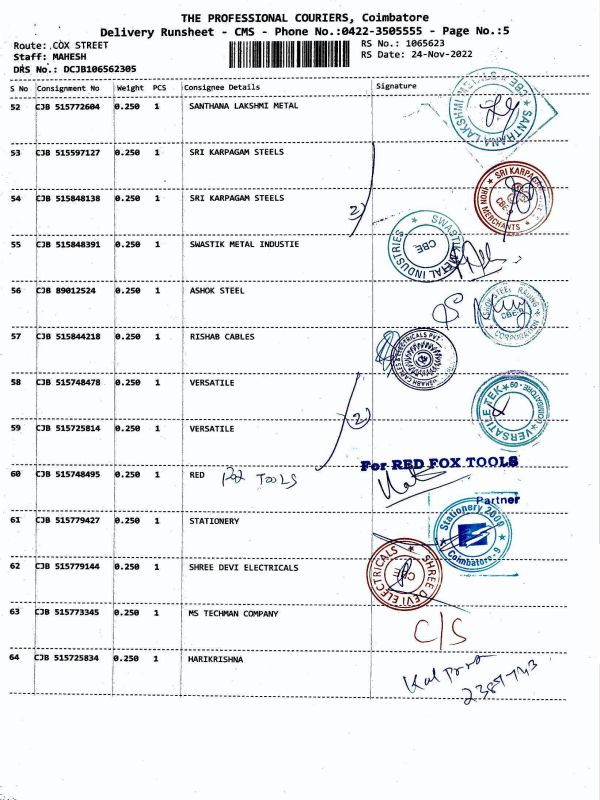 THE PROFESSIONAL COURIERS, Coimbatore
Delivery Runsheet - CMS - Phone No.:0422-3505555 - Page No.:5
Route: COX STREET RS No.: 1065623
Staff: MAHESH RS Date: 24-Nov-2022
DRS No.: DCJB106562305
S No Consignment No Weight PCS Consignee Details Signature
52 CJB 515772604 0.250 1 SANTHANA LAKSHMI METAL
SANTHANA LAKSHMI METALS CBE
53 CJB 515597127 0.250 1 SRI KARPAGAM STEELS
54 CJB 515848138 0.250 1 SRI KARPAGAM STEELS 2)
IRON MERCHANTS CBE
55 CJB 515848391 0.250 1 SWASTIK METAL INDUSTIE
SWASTIK METAL INDUSTRIES CBE
56 CJB 89012524 0.250 1 ASHOK STEEL
CORPORATION CBE
57 CJB 515844218 0.250 1 RISHAB CABLES
58 CJB 515748478 0.250 1 VERSATILE
VERSATILE TEK COIMBATORE - 09
59 CJB 515725814 0.250 1 VERSATILE 2)
60 CJB 515748495 0.250 1 RED Fox TOOLS
For RED FOX TOOLS
Partner
61 CJB 515779427 0.250 1 STATIONERY
Stationery 2000 Coimbatore - 9
62 CJB 515779144 0.250 1 SHREE DEVI ELECTRICALS
SHREE DEVI ELECTRICALS
63 CJB 515773345 0.250 1 MS TECHMAN COMPANY C/S
64 CJB 515725834 0.250 1 HARIKRISHNA